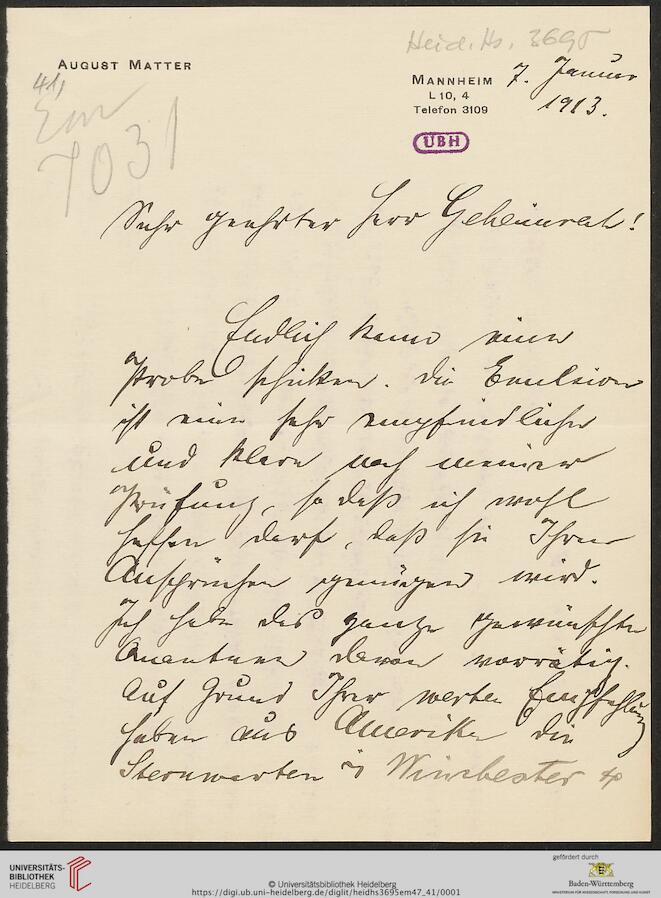 Heid. Hs. 3695
AUGUST MATTER
41,
MANNHEIM
L 10, 4
Telefon 3109
7. Januar
1913.
Em
7031
UBH
Sehr geehrter Herr Geheimrat!
Endlich kann eine
Probe schicken. Die Emulsion
ist eine sehr empfindliche
und klare nach meiner
Prüfung, so daß ich wohl
hoffen darf, daß sie Ihren
Ansprüchen genügen wird.
Ich habe das ganze gewünschte
Quantum davon vorrätig.
Auf Grund Ihrer werten Empfehlung
haben aus Amerika die
Sternwarten in Winchester
UNIVERSITÄTS-
BIBLIOTHEK
HEIDELBERG
© Universitätsbibliothek Heidelberg
https://digi.ub.uni-heidelberg.de/diglit/heidhs3695em47_41/0001
gefördert durch
Baden-Württemberg
MINISTERIUM FÜR WISSENSCHAFT, FORSCHUNG UND KUNST